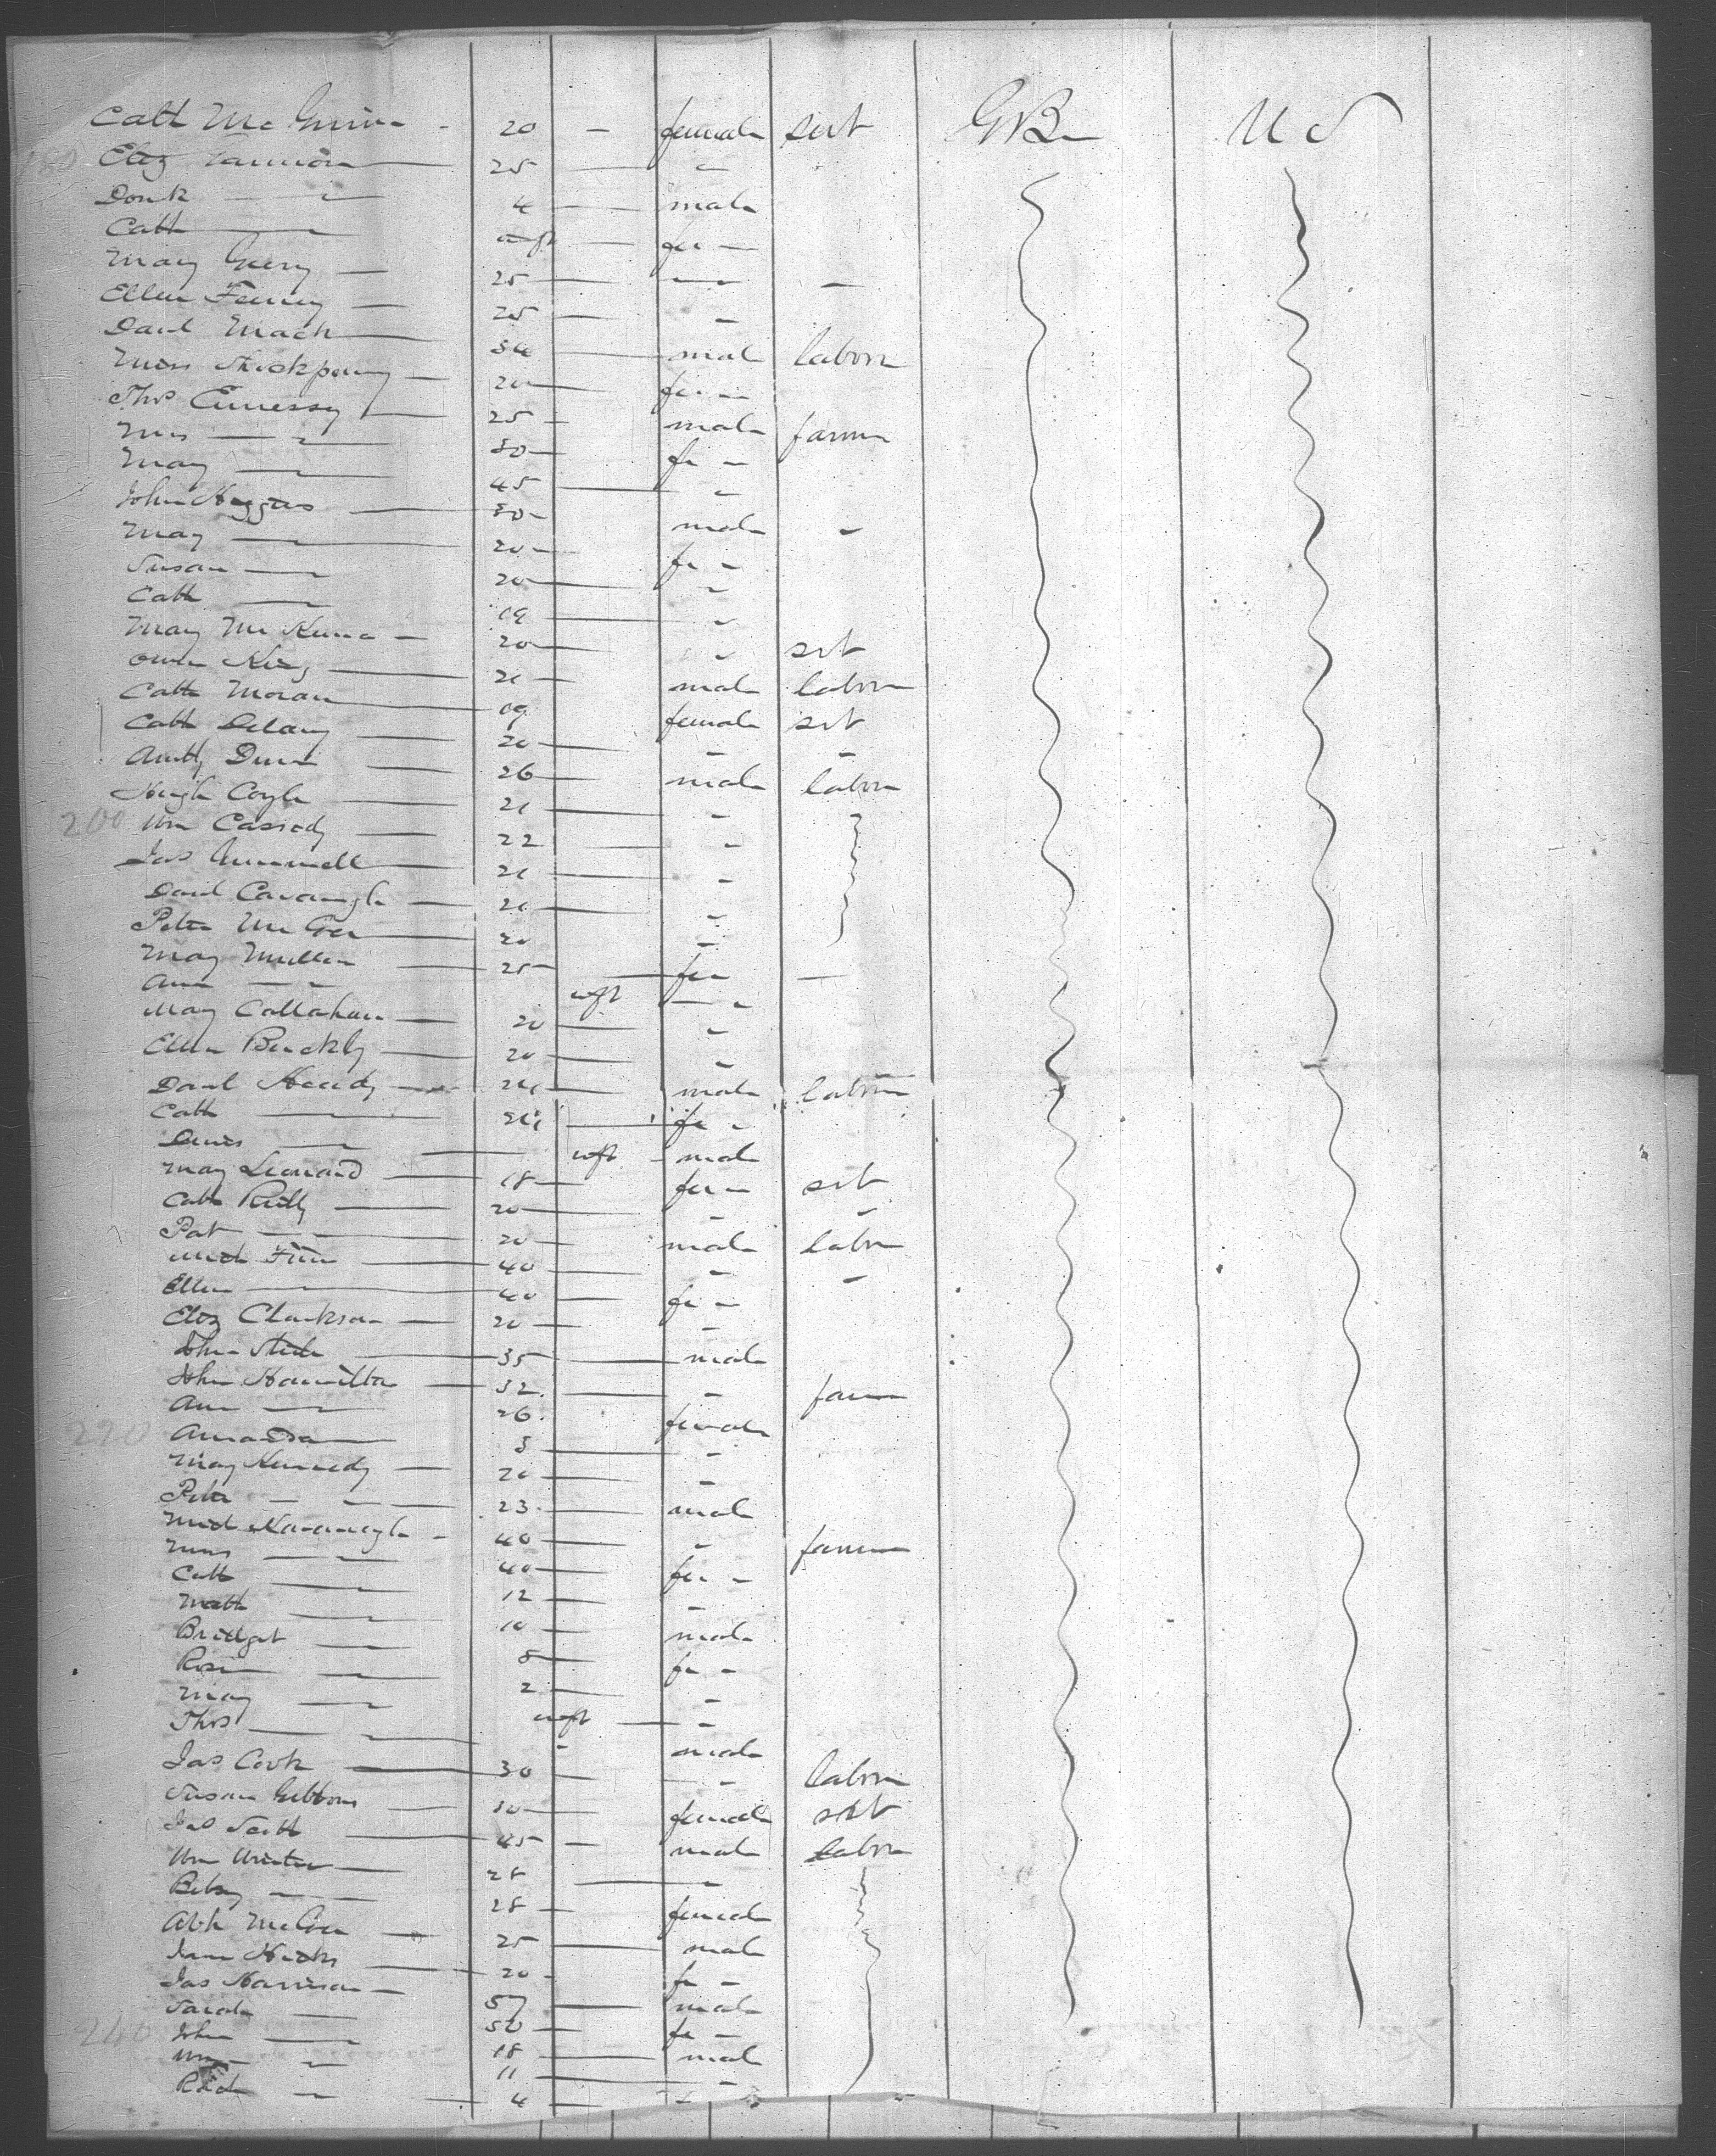 Cath Mc - 20 - female sert GB U S
180 Eliz 25 "
4 male
Cath inft fe "
Mary 25 " "
Ellen 25 "
Danl Mack 34 male labor
Miss 20 fe "
Thos Ennessy 25 male farm
Mrs " 30 fe "
Mary " 45 "
John Haggas 30 male "
Mary " 20 fe "
Susan " 20 "
Cath " 19 "
Mary McKenna 20 " sert
Owen King 21 male labor
Cath Moran 19 female sert
Cath Delany 20 " "
Dunn 26 male labor
Hugh Coyle 21 "
200 Wm Casiedy 22 "
Jas 21 "
Danl Cavanagh 21 "
Peter McGee 20 "
Mary Mullen 25 fe "
Ann " inft "
Mary Callahan 20 "
Ellen Buckly 20 "
Danl 24 male labor
Cath " 24 fe "
" inft male
Mary Leonard 18 fe sert
Cath Reilly 20 " "
Pat " 20 male labor
Mich Finn 40 " "
Ellen " 40 fe "
Eliz Clarkson 20 "
John 35 male
John Hamilton 32 " farm
Ann " 26 female
220 Amanda 3 "
Mary Kennedy 20 "
Peter " 23 male
Mich Kavanagh 40 " farm
Mrs " 40 fe "
Cath " 12 "
Math " 10 male
Bridget " 8 fe "
Rose " 2 "
Mary " inft "
Thos " " male
Jas Cook 30 " labor
Susan Gibbons 30 female sert
Jas Scott 45 male labor
Wm Winter 28 "
Betsy " 28 female
Abh McGee 25 male
Jane Hicks 20 fe "
Jas Harrison 57 male
Sarah " 50 fe "
240 John " 18 male
Wm " 11 "
Richd " 4 "